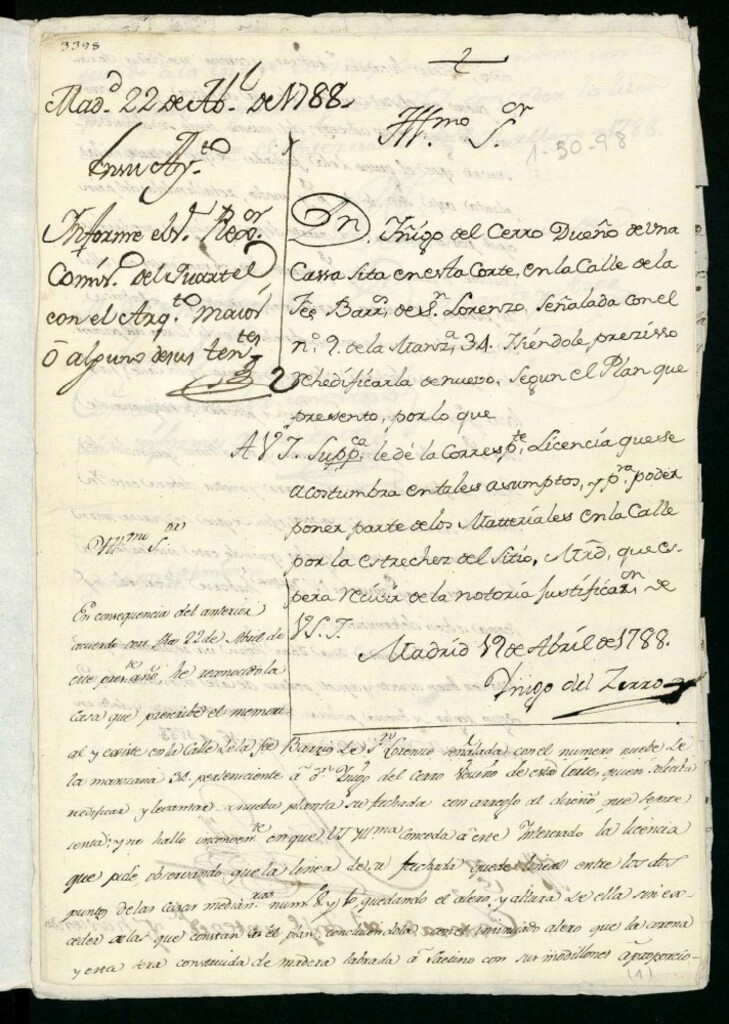 3398
Mad.d 22 de Ab.l de 1788.
Yll.mo S.or
1-50-98
En su Ay.to
Informe el S.r Reg.or
Comis.o del Quartel
con el Arq.to maior
ó alguno de sus ten.tes
Dn. Iñigo del Cerro Dueño de una
Cassa sita en esta Corte, en la Calle de la
Fee Barr.o de S.n Lorenzo, señalada con el
n.o 9. de la Manz.a 34. Siéndole, prezisso
rehedificarla de nuevo, segun el Plan que
pressento, por lo que
A V.S.I. Supp.ca le dé la Corresp.te Licencia que se
acostumbra en tales asumptos, y p.ra poder
poner parte de los Matteriales en la Calle
por la estrechez del Sitio, Mrd, que es-
pera recivir de la notoria Justificaz.on de
V.S.I.
Madrid 19 de Abril de 1788.
Iñigo del Zerro
Yll.mo S.or
En consequencia del anterior
acuerdo con fha 22 de Abril de
este pres.te año, he reconocido la
casa que prescribe el memori-
al y existe en la Calle de la fee Barrio de S.n Lorenzo señalada con el numero nuebe de
la manzana 34 perteneciente á D.n Yñigo del Cerro vecino de esta Corte, quien solicita
redificar y levantar de nueba planta su fachada con arreglo al diseño que se pre
senta; y no hallo inconven.te en que V.S.Yll.ma conceda á este Interesado la licencia
que pide observando que la linea de su fachada quede lineal entre los dos
puntos de las casas median.ras num.s 8 y 10 quedando el alero, y altura de ella sin ex-
ceder de las que constan en el plan, concluiendola con el insinuado alero que la corona
y esta sera construida de madera labrada á sus modillones á proporcio-
(1)